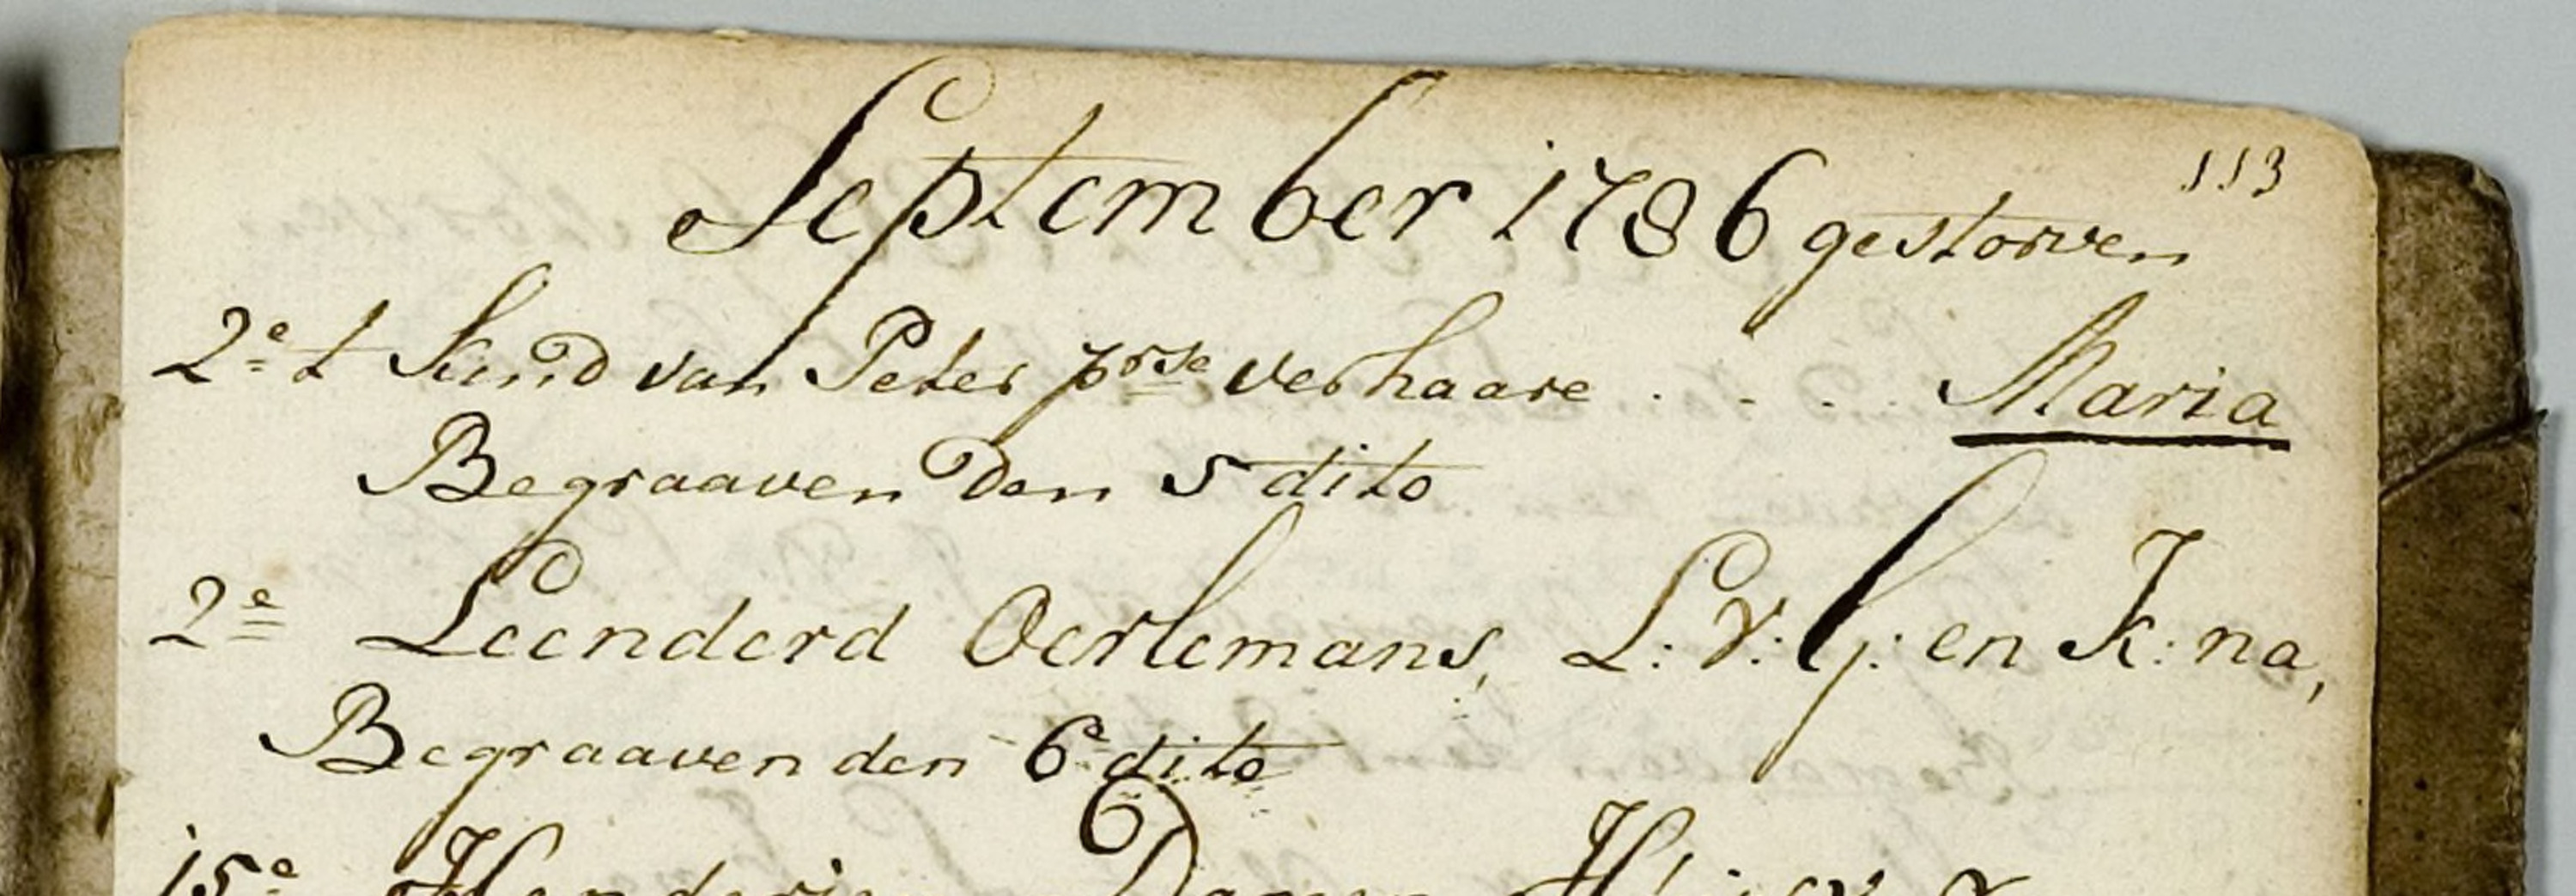 113
September 1786 gestorven
2e t Kind van Peter prse verhaare . . . . Maria
Begraaven Den 5 dito
2e Leenderd Oerlemans, L: V: G: en K: na,
Begraaven den 6e dito
15e